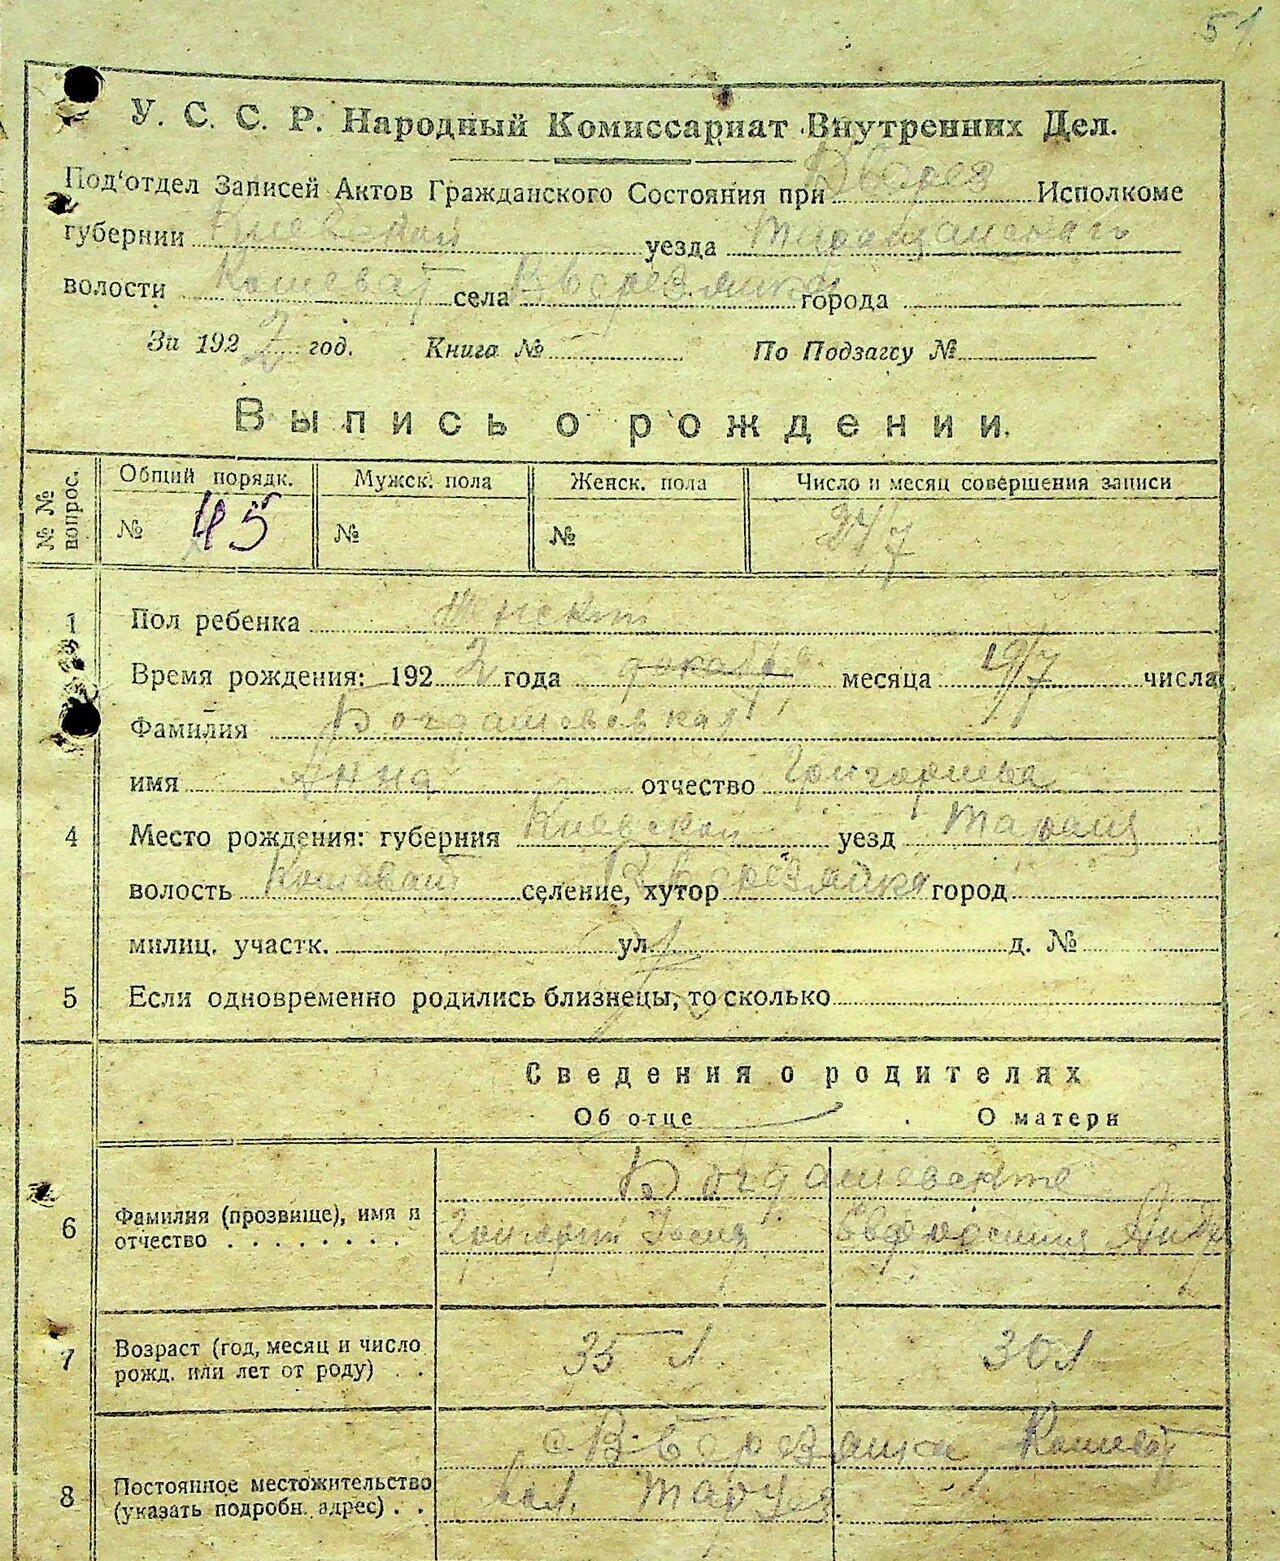 51
У. С. С. Р. Народный Комиссариат Внутренних Дел.
Под'отдел Записей Актов Гражданского Состояния при В Берез Исполкоме
губернии Киевской уезда Таращанского
волости Кошеват села В Березянки города
За 1922 год. Книга № По Подзагсу №
Выпись о рождении.
№ № вопрос. Общий порядк. Мужск. пола Женск. пола Число и месяц совершения записи
№ 45 № № 24/7
1 Пол ребенка Женский
Время рождения: 1922 года месяца 19/7 числа
Фамилия Богдашевская
имя Анна отчество Григорьева
4 Место рождения: губерния Киевской уезд Таращ
волость Кошеват селение, хутор В Березянка город
милиц. участк. ул. д. №
5 Если одновременно родились близнецы, то сколько
Сведения о родителях
Об отце О матери
6 Фамилия (прозвище), имя и отчество Богдашевские
Григорий Иосип Евфросиния Андр
7 Возраст (год, месяц и число рожд. или лет от роду) 35 л. 30 л
8 Постоянное местожительство (указать подробн. адрес) с В-Березянка, Кошеват
вол.